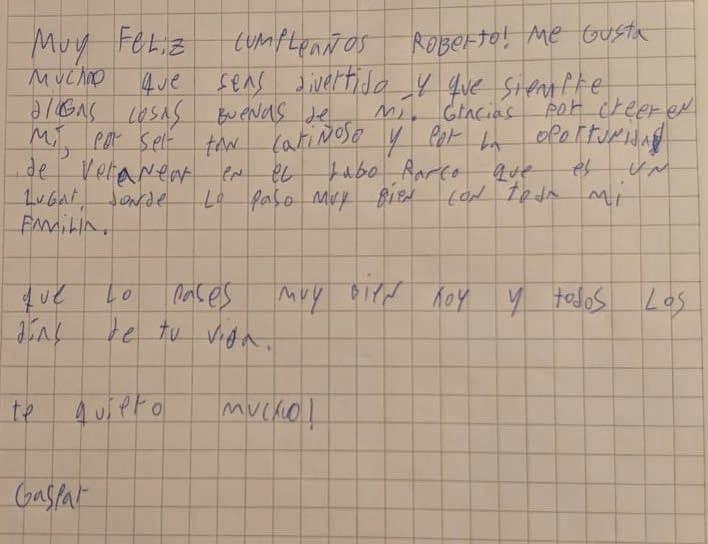 Muy Feliz cumpleaños Roberto! Me Gusta
mucho que seas divertido y que siempre
digas cosas buenas de mi. Gracias por creer en
mi, por ser tan cariñoso y por la oportunidad
de veranear en el Lago Ranco que es un
lugar donde lo paso muy bien con toda mi
familia.
que lo pases muy bien hoy y todos los
días de tu vida.
te quiero mucho!
Gaspar